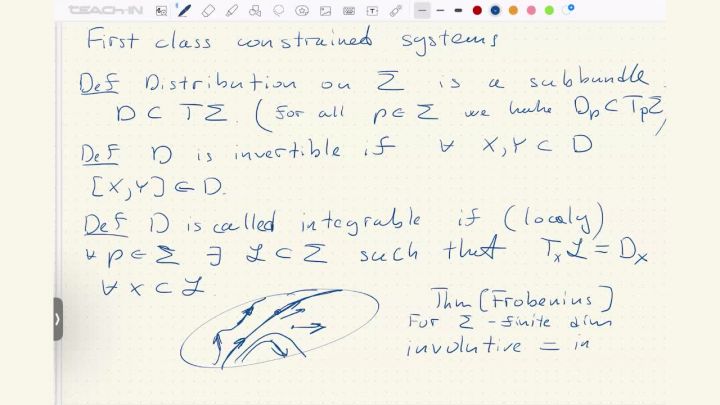 TEACH-IN
First class constrained systems
Def Distribution on Σ is a subbundle
D ⊂ TΣ. (for all p ∈ Σ we have Dp ⊂ TpΣ)
Def D is invertible if ∀ X,Y ⊂ D
[X,Y] ∈ D.
Def D is called integrable if (localy)
∀ p ∈ Σ ∃ ℒ ⊂ Σ such that Txℒ = Dx
∀ x ⊂ ℒ
Thm (Frobenius)
For Σ - finite dim
involutive = in